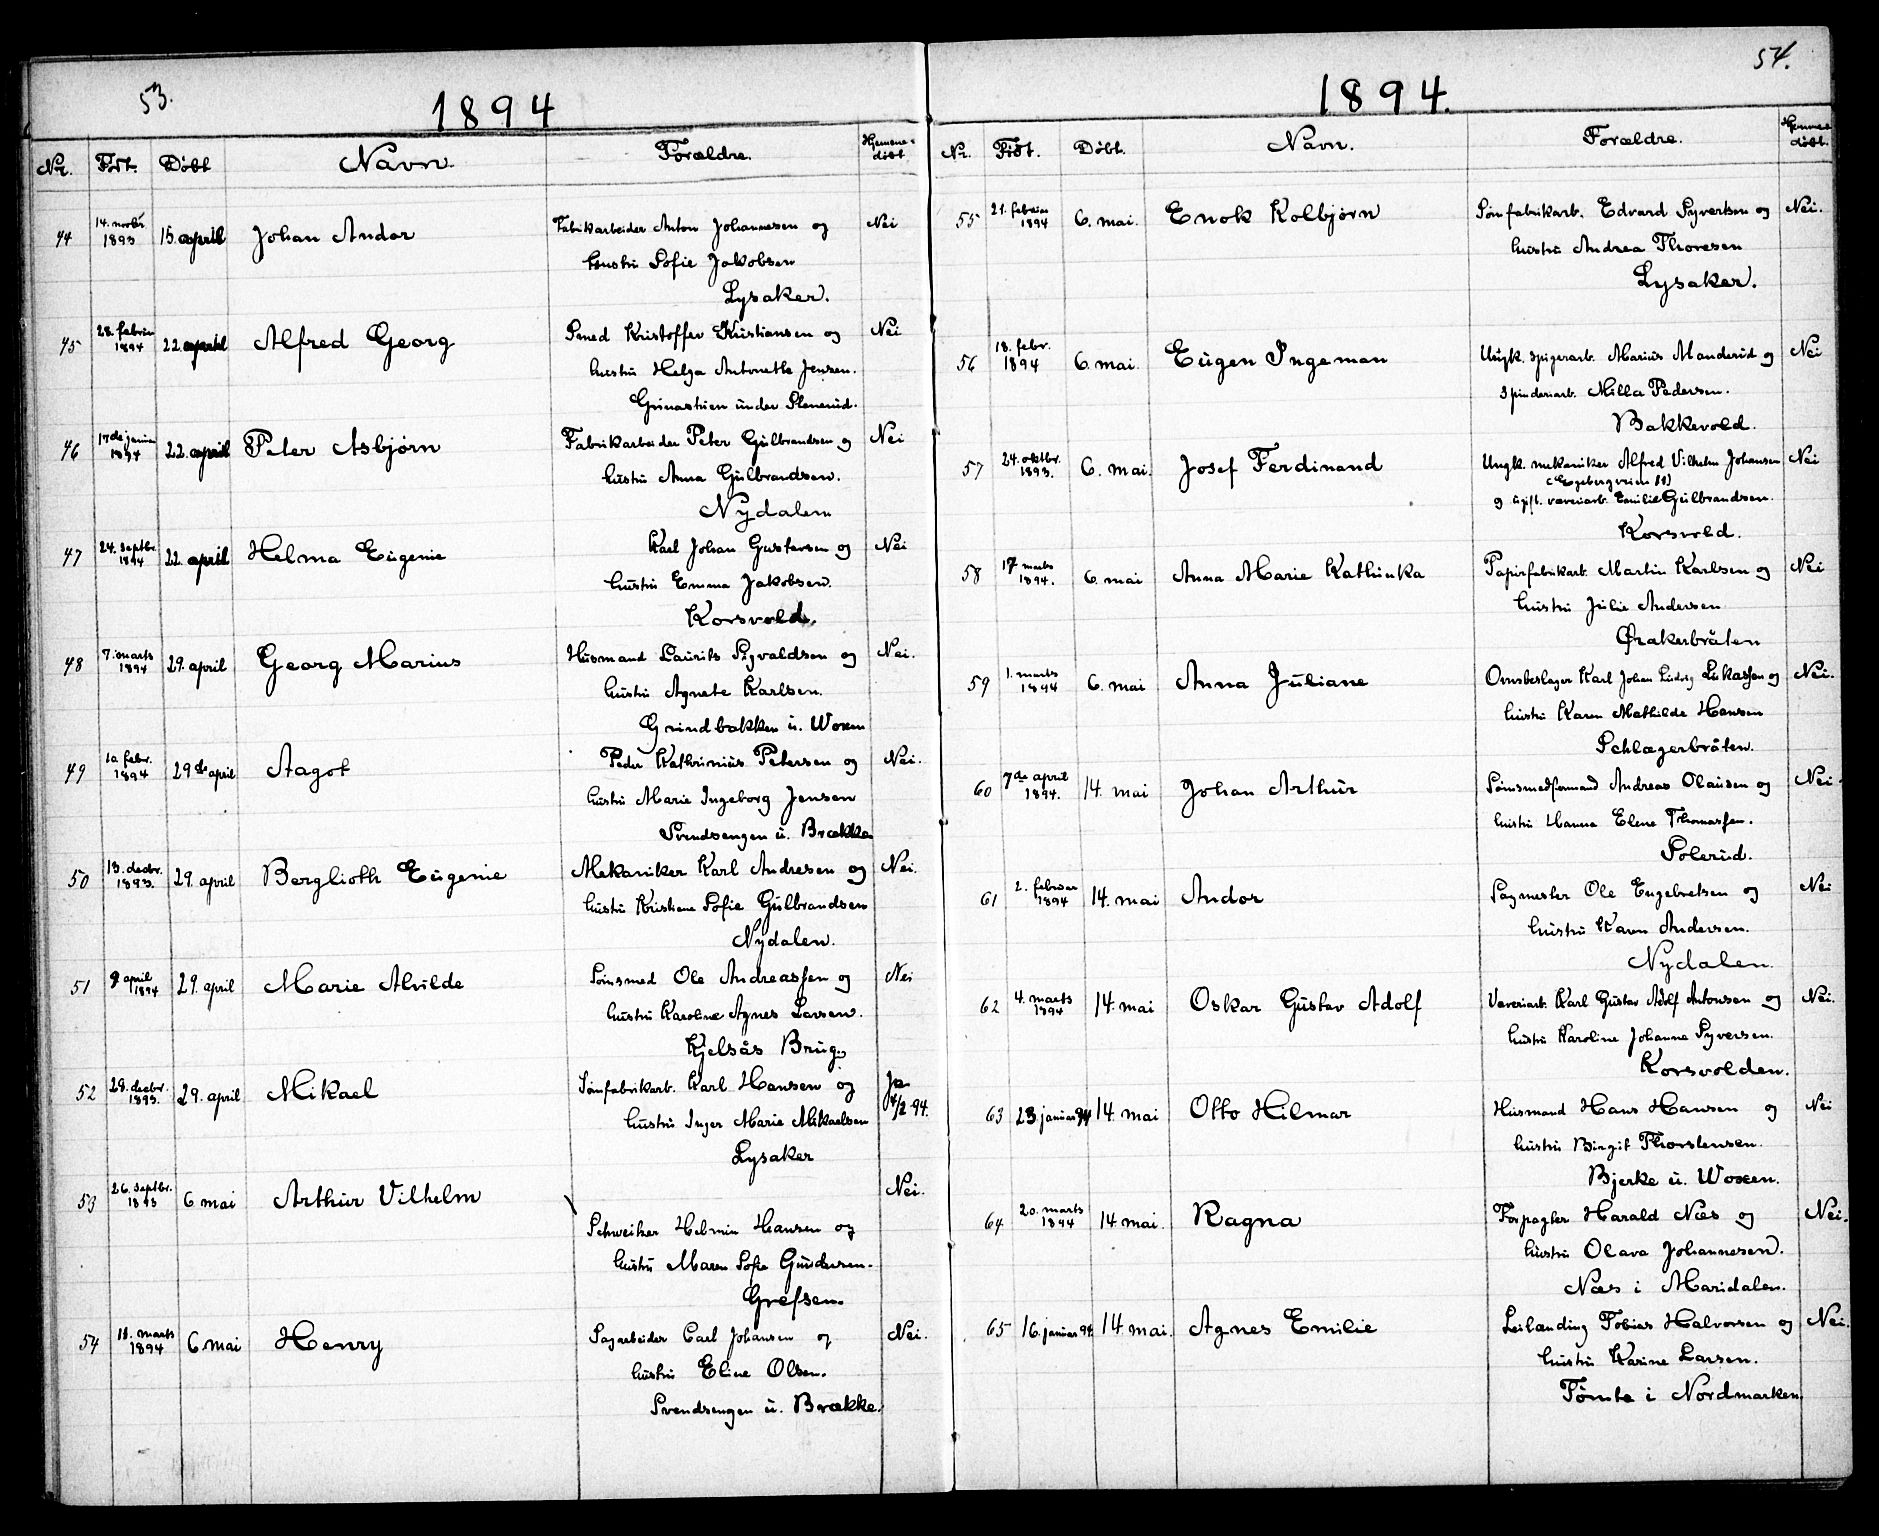 53.
1894
Nr. Født. Døbt Navn. Forældre. Hjemmedøbt
44 14. novbr 1893 15. april Johan Andor Fabrikarbeider Anton Johannesen og Nei
hustru Sofie Jakobsen
Lysaker.
45 28. februar 1894 22. april Alfred Georg Smed Kristoffer Kristiansen og Nei
hustru Helga Antonette Jensen.
under
46 17de januar 1894 22. april Peter Asbjørn Fabrikarbeider Peter Gulbrandsen og Nei
hustru Anna Gulbrandsen.
Nydalen
47 24. septbr. 1894 22. april Helma Eugenie Karl Johan Gustavsen og Nei
hustru Emma Jakobsen.
Korsvold.
48 7. marts 1894 29. april Georg Marius Husmand Laurits Sigvaldsen og Nei.
hustru Agnete Karlsen.
Grindbakken u. Woxen
49 10 febr. 1894 29de april Aagot Peder Kathrinius Petersen og Nei.
hustru Marie Ingeborg Jensen
Svendsengen u. Brække
50 13. decbr. 1893. 29. april Berglioth Eugenie Mekaniker Karl Andresen og Nei.
hustru Kristine Sofie Gulbrandsen
Nydalen.
51 9 april 1894 29. april Marie Alvilde Sømsmed Ole Andreassen og Nei
hustru Karoline Agnes Larsen.
Kjelsås Brug.
52 28. decbr. 1893. 29. april Mikael Sømfabrikarb. Karl Hansen og Ja
hustru Inger Marie Mikaelsen 4/2 94.
Lysaker
53 26. septbr. 1893 6 mai Arthur Vilhelm Nei.
Schweitser Helmin Hansen og
hustru Maren Sofie Gundersen.
Grefsen.
54 11. marts 1894 6. mai Henry Sagarbeider Carl Johansen og Nei.
hustru Eline Olsen.
Svendsengen u. Brække.
54.
1894.
Nr. Født. Døbt. Navn. Forældre. Hjemmedøbt.
55 21. februar 1894 6. mai. Enok Kolbjørn Sømfabrikarb. Edvard Syvertsen og Nei.
hustru Andrea Thoresen
Lysaker.
56 18. febr. 1894 6. mai. Eugen Ingeman Ungk. spigerarb. Marius Manderud og Nei
spinderiarb. Milla Pedersen.
Bakkevold.
57 24. oktbr. 1893. 6. mai. Josef Ferdinand Ungk. mekaniker Alfred Vilhelm Johansen Nei
(Egebergveien 11)
og ugift. væveriarb. Emilie Gulbrandsen.
Korsvold.
58 17 marts 1894. 6. mai Anna Marie Kathinka Papirfabrikarb. Martin Karlsen og Nei
hustru Julie Andersen
Ørakerbråten
59 1. marts 1894 6. mai Anna Juliane Ovnsbeslager Karl Johan Ludvig Lukassen og Nei.
hustru Karen Mathilde Hansen
Schlægerbråten.
60 7de april 1894. 14. mai Johan Arthur Sømsmedformand Andreas Olausen og Nei.
hustru Hanna Elene Thomassen.
Solerud.
61 2. februar 1894 14. mai Andor Sagmester Ole Engebretsen og Nei
hustru Karen Andersen.
Nydalen.
62 4. marts 1894 14. mai Oskar Gustav Adolf Væveriarb. Karl Gustav Adolf Antonsen og Nei.
hustru Karoline Johanna Syversen.
Korsvolden.
63 23 januar 94 14. mai Otto Hilmar Husmand Hans Hansen og Nei
hustru Birgit Thorstensen.
Bjerke u. Woxen.
64 20. marts 1894 14 mai. Ragna Forpagter Harald Næs og Nei.
hustru Olava Johannesen.
Næs i Maridalen.
65 16. januar 94 14 mai. Agnes Emilie Leilænding Tobias Halvorsen og Nei.
hustru Karine Larsen.
Tømte i Nordmarken